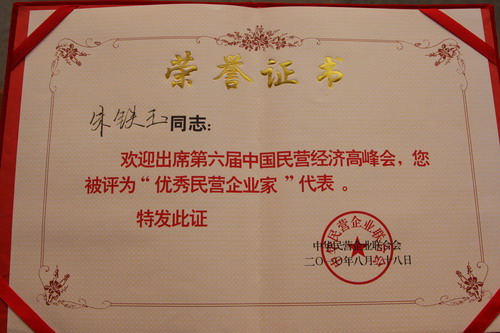 荣誉证书
朱铁玉同志:
欢迎出席第六届中国民营经济高峰会,您
被评为“优秀民营企业家”代表。
特发此证
中华民营企业联合会
中华民营企业联合会
二〇一〇年八月二十八日